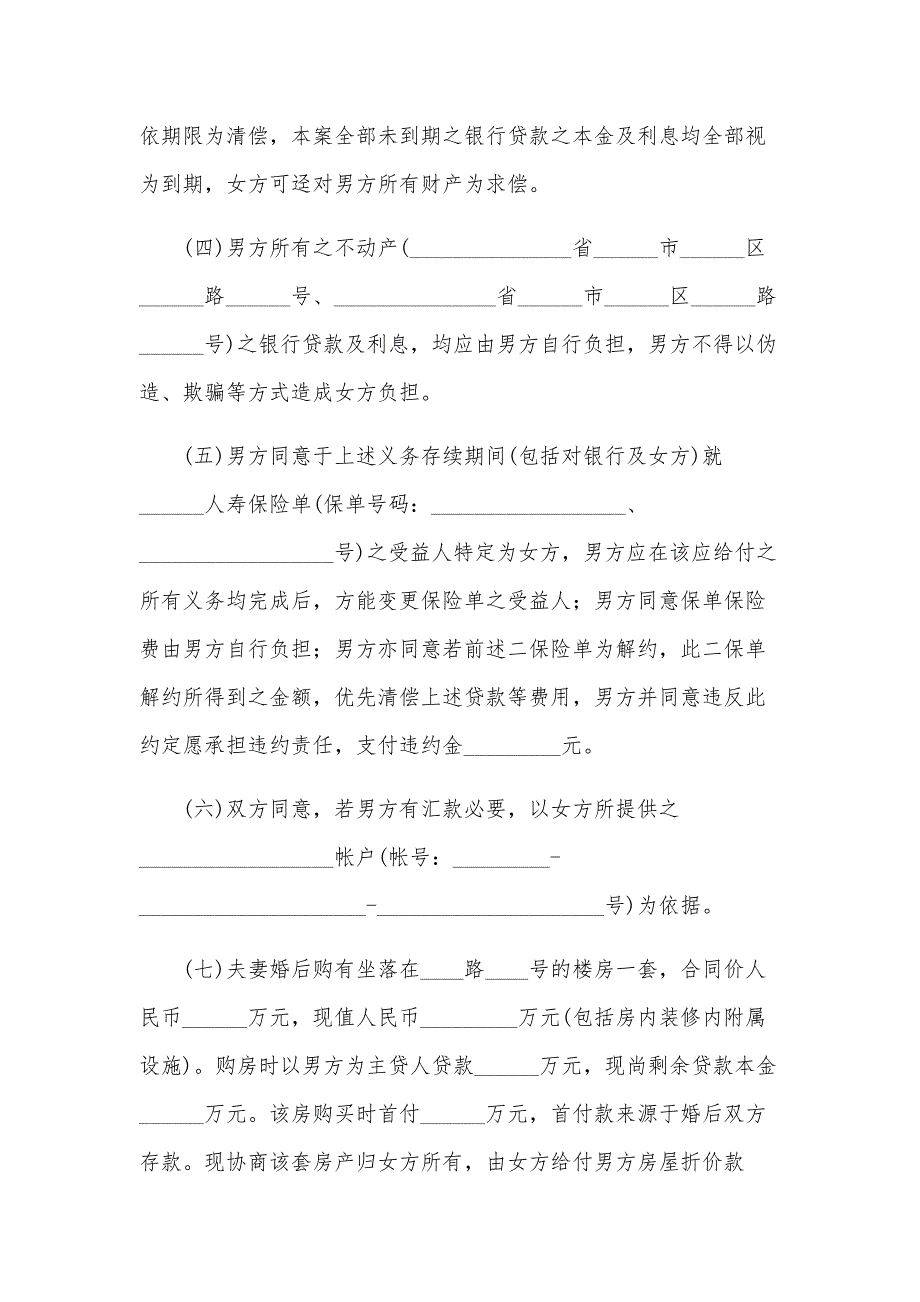 依期限为清偿，本案全部未到期之银行贷款之本金及利息均全部视
为到期，女方可迳对男方所有财产为求偿。
(四)男方所有之不动产(_______________省______市______区
______路______号、_______________省______市______区______路
______号)之银行贷款及利息，均应由男方自行负担，男方不得以伪
造、欺骗等方式造成女方负担。
(五)男方同意于上述义务存续期间(包括对银行及女方)就
______人寿保险单(保单号码：__________________、
__________________号)之受益人特定为女方，男方应在该应给付之
所有义务均完成后，方能变更保险单之受益人；男方同意保单保险
费由男方自行负担；男方亦同意若前述二保险单为解约，此二保单
解约所得到之金额，优先清偿上述贷款等费用，男方并同意违反此
约定愿承担违约责任，支付违约金_________元。
(六)双方同意，若男方有汇款必要，以女方所提供之
__________________帐户(帐号：_________-
_____________________-_____________________号)为依据。
(七)夫妻婚后购有坐落在____路____号的楼房一套，合同价人
民币______万元，现值人民币_________万元(包括房内装修内附属
设施)。购房时以男方为主贷人贷款______万元，现尚剩余贷款本金
______万元。该房购买时首付______万元，首付款来源于婚后双方
存款。现协商该套房产归女方所有，由女方给付男方房屋折价款